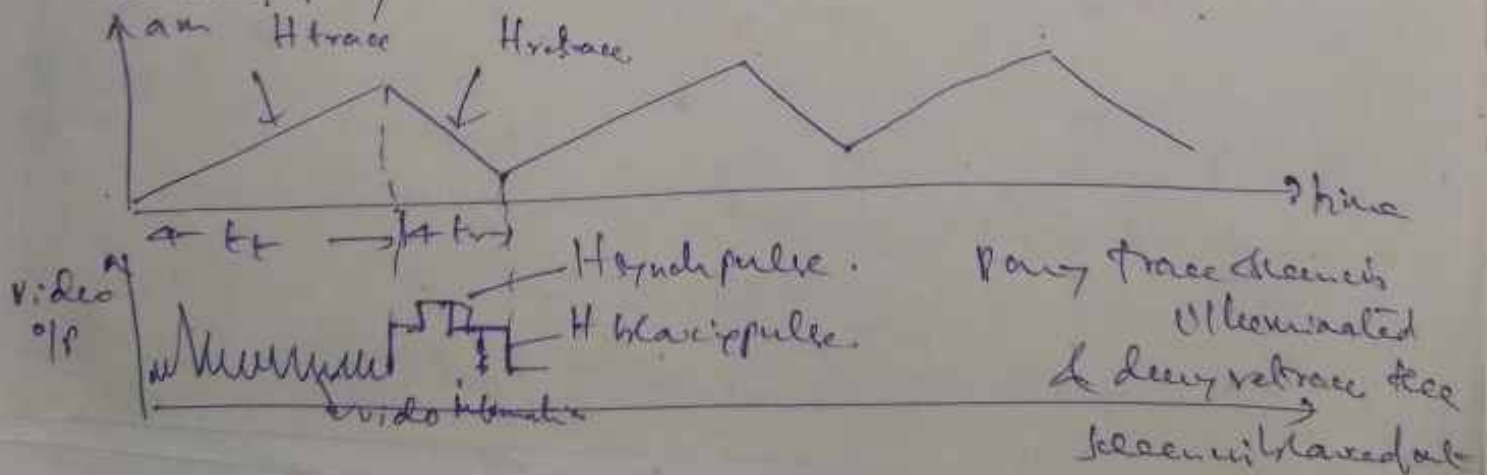 am H trace H retrace
time
tt tr
video o/p
H synch pulse.
H blanking pulse.
video information
During trace screen is
illuminated
& during retrace the
screen is blanked out